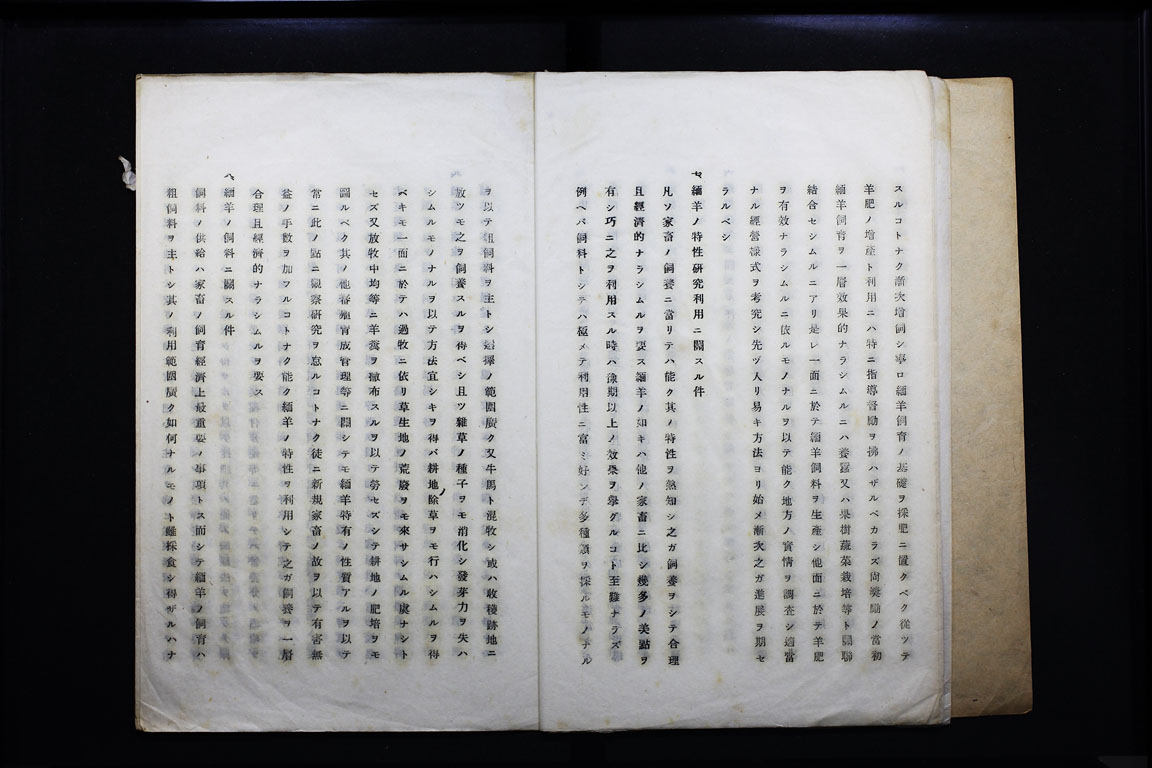 スルコトナク漸次增飼シ寧ロ緬羊飼育ノ基礎ヲ採肥ニ置クベク從ツテ
羊肥ノ增產ト利用ニハ特ニ指導督勵ヲ拂ハザルベカラズ尙奬勵ノ當初
緬羊飼育ヲ一層效果的ナラシムルニハ養蠶又ハ果樹蔬菜栽培等ト關聯
結合セシムルニアリ是レ一面ニ於テ緬羊飼料ヲ生產シ他面ニ於テ羊肥
ヲ有效ナラシムルニ依ルモノナルヲ以テ能ク地方ノ實情ヲ調査シ適當
ナル經營樣式ヲ考究シ先ヅ入リ易キ方法ヨリ始メ漸次之ガ進展ヲ期セ
ラルベシ
七、緬羊ノ特性硏究利用ニ關スル件
凡ソ家畜ノ飼養ニ當リテハ能ク其ノ特性ヲ熟知シ之ガ飼養ヲシテ合理
且經濟的ナラシムルヲ要ス緬羊ノ如キハ他ノ家畜ニ比シ幾多ノ美點ヲ
有シ巧ニ之ヲ利用スル時ハ豫期以上ノ效果ヲ擧グルコト至難ナラズ
例ヘバ飼料トシテハ極メテ利用性ニ富ミ好ンデ多種類ヲ採ルモノナル
ヲ以テ粗飼料ヲ主トシ選擇ノ範圍廣ク又牛馬ト混牧シ或ハ收穫跡地ニ
放ツモ之ヲ飼養スルヲ得ベシ且ツ雜草ノ種子ヲモ消化シ發芽力ヲ失ハ
シムルモノナルヲ以テ方法宜シキヲ得バ耕地除草ヲモ行ハシムルヲ得
ベキモ一面ニ於テハ過牧ニ依リ草生地ノ荒廢ヲモ來サシムル虞ナシト
セズ又放牧中均等ニ羊糞ヲ撒布スルヲ以テ勞セズシテ耕地ノ肥培ヲモ
圖ルベク其ノ他蕃殖育成管理等ニ關シテモ緬羊特有ノ性質アルヲ以テ
常ニ此ノ點ニ觀察硏究ヲ怠ルコトナク徒ニ新規家畜ノ故ヲ以テ有害無
益ノ手數ヲ加フルコトナク能ク緬羊ノ特性ヲ利用シテ之ガ飼養ヲ一層
合理且經濟的ナラシムルヲ要ス
八、緬羊ノ飼料ニ關スル件
飼料ノ供給ハ家畜ノ飼育經濟上最重要ノ事項トス而シテ緬羊ノ飼育ハ
粗飼料ヲ主トシ其ノ利用範圍廣ク如何ナルモノト雖採食シ得ザルハナ